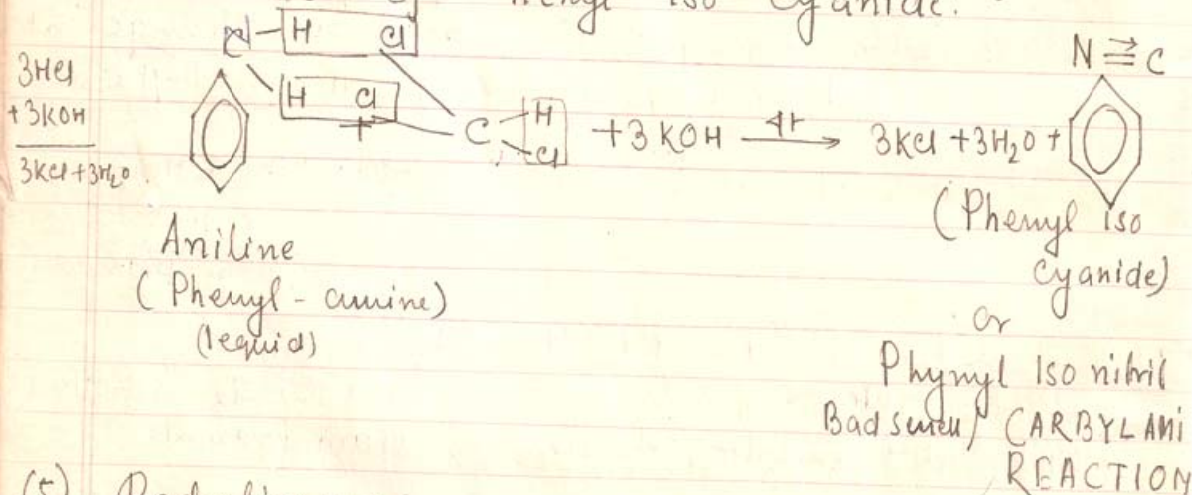 henyl iso cyanide.
N-H Cl
H Cl
3HCl
+3KOH
3KCl+3H₂O.
+
C
H
Cl
+3KOH → 3KCl+3H₂O+
N≡C
Aniline
(Phenyl-amine)
(lequid)
(Phenyl iso
cyanide)
or
Phynyl Iso nitril
Bad smell/ CARBYLAMI
REACTION
(5)